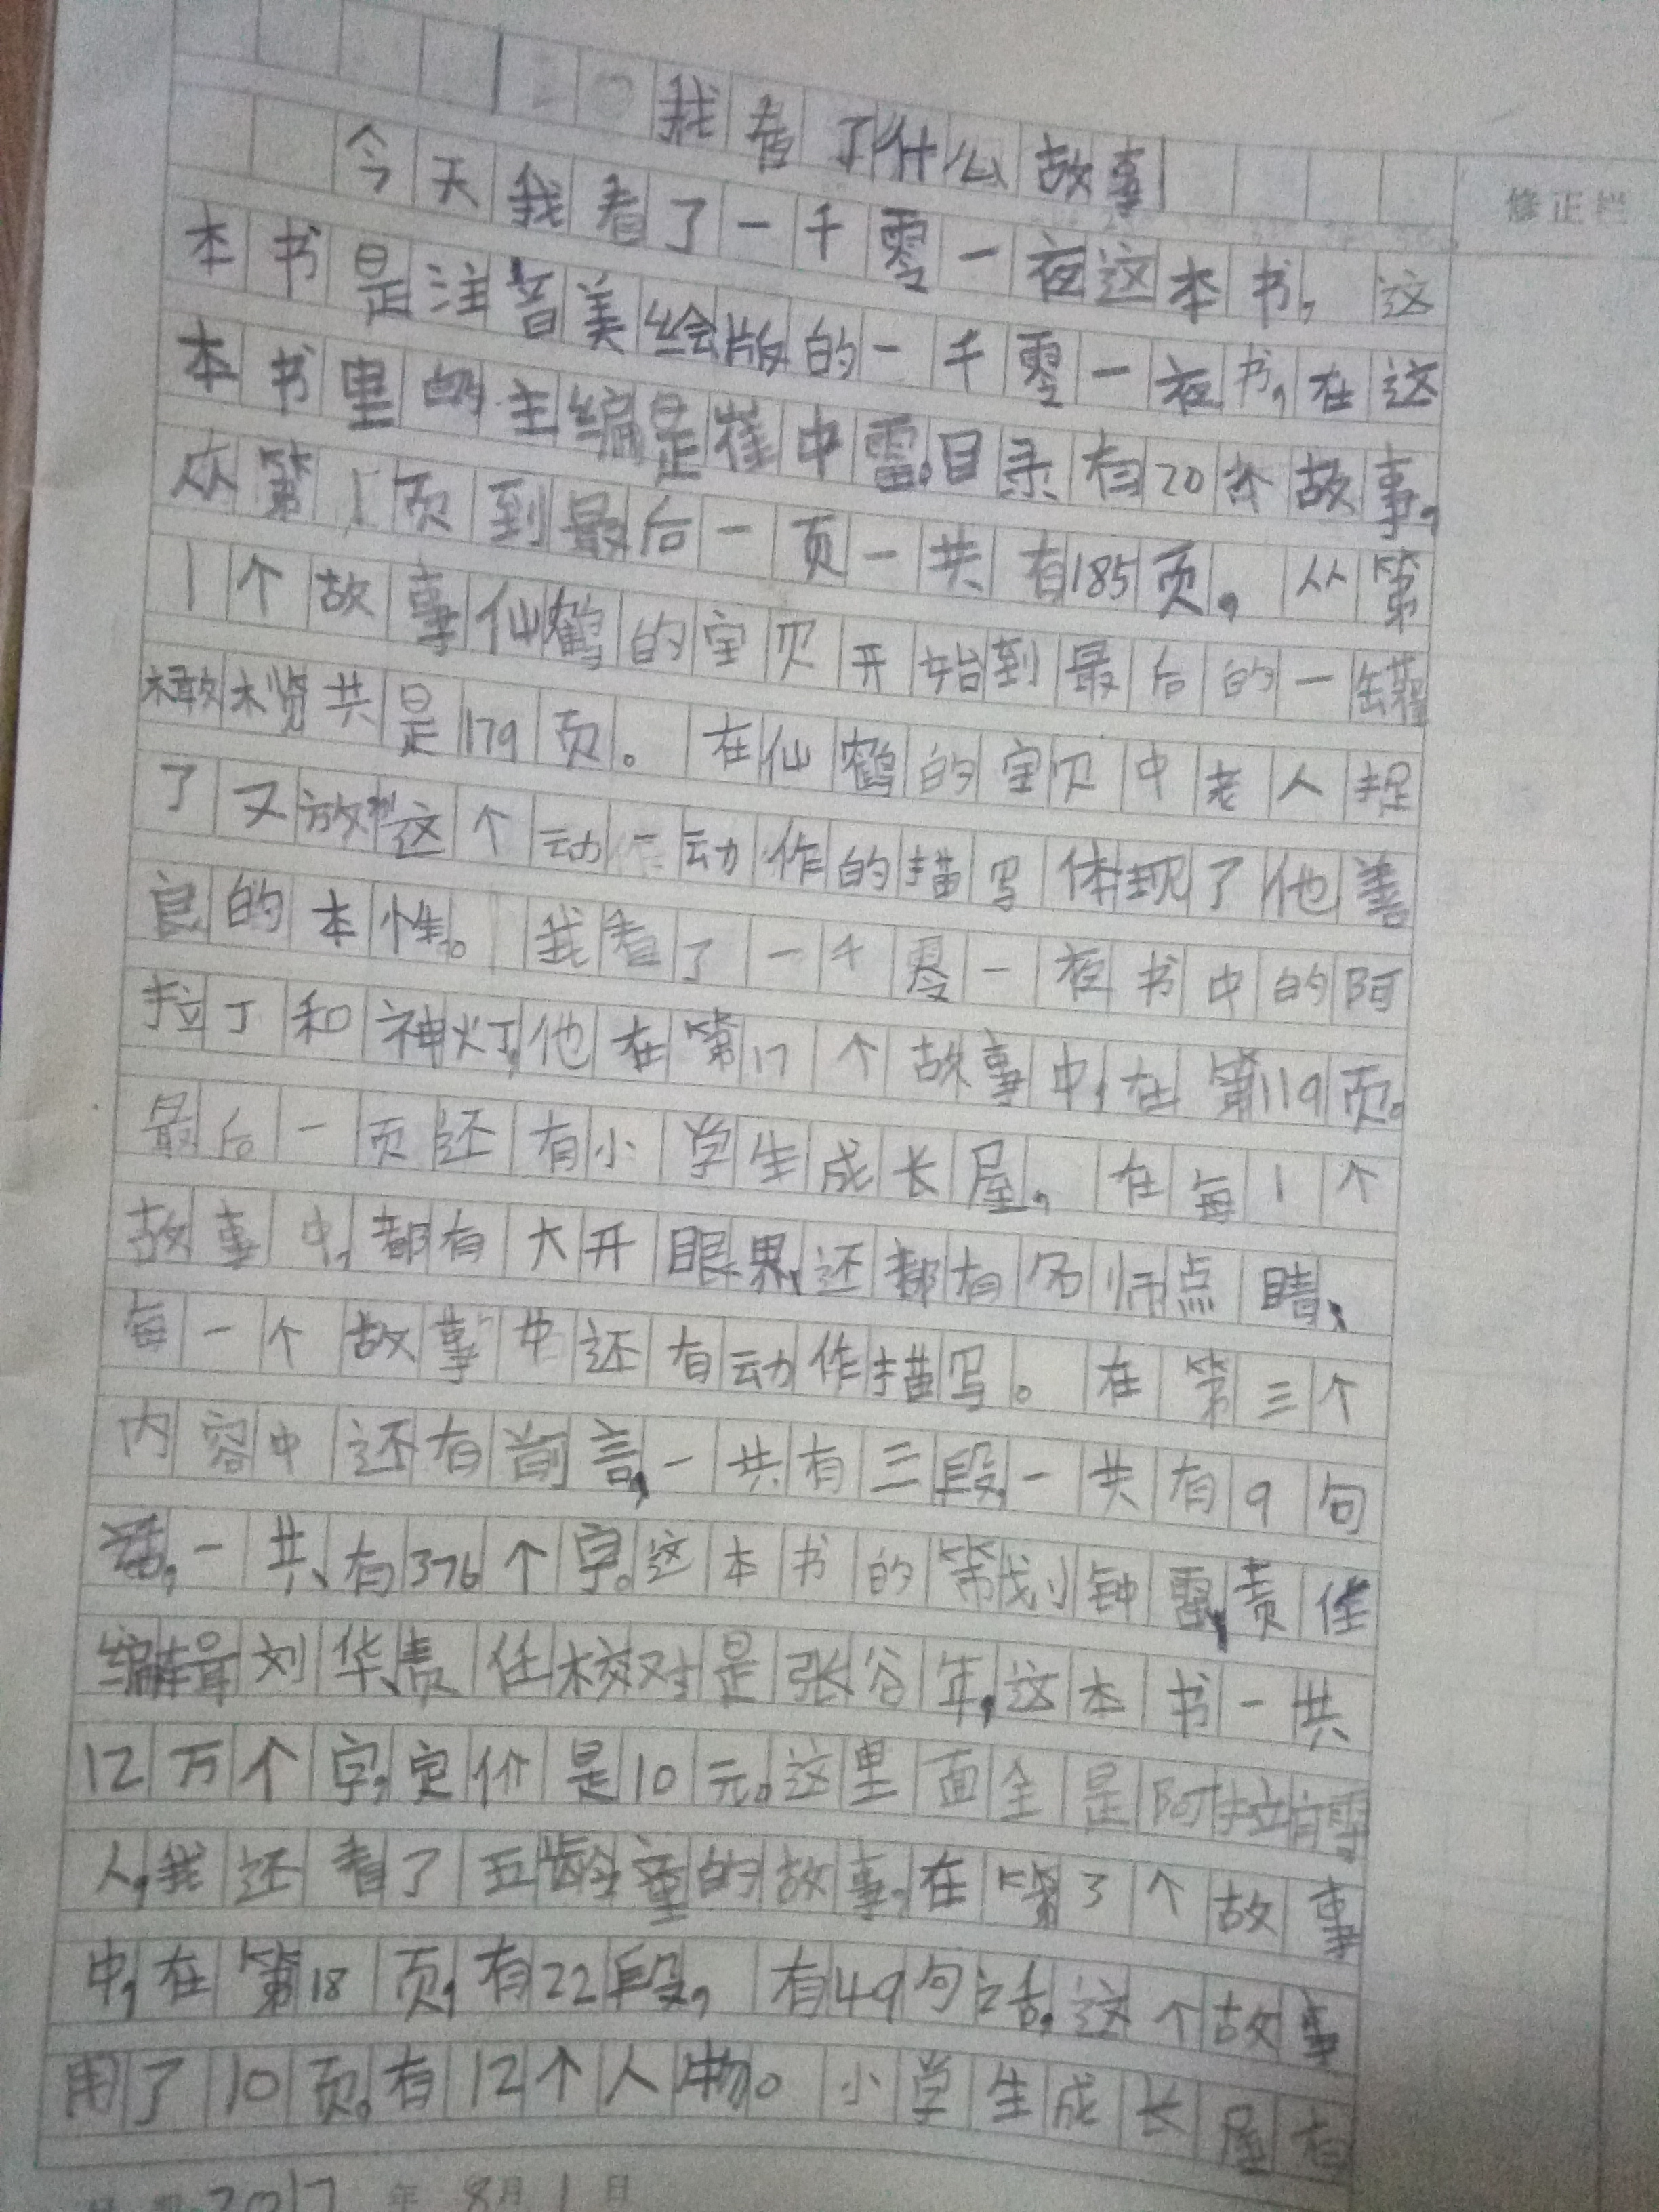 我看了什么故事
今天我看了一千零一夜这本书，这
本书是注音美绘版的一千零一夜书，在这
本书里的主编是崔中雷。目录有20个故事，
从第1页到最后一页一共有185页。从第
1个故事仙鹤的宝贝开始到最后的一罐
橄榄共是179页。在仙鹤的宝贝中老人捉
了又放"这个动作动作的描写体现了他善
良的本性。我看了一千零一夜书中的阿
拉丁和神灯，他在第17个故事中，在第119页。
最后一页还有小学生成长屋，在每1个
故事中，都有大开眼界、还都有名师点睛、
每一个故事中还有动作描写。在第三个
内容中还有前言，一共有三段，一共有9句
话，一共有376个字。这本书的策划钟雷，责任
编辑刘华、责任校对是张谷年，这本书一共
12万个字，定价是10元。这里面全是阿拉
人，我还看了五龄童的故事，在第3个故事
中，在第18页，有22段，有49句话，这个故事
用了10页，有12个人物。小学生成长屋有
2017年8月1日
修正栏